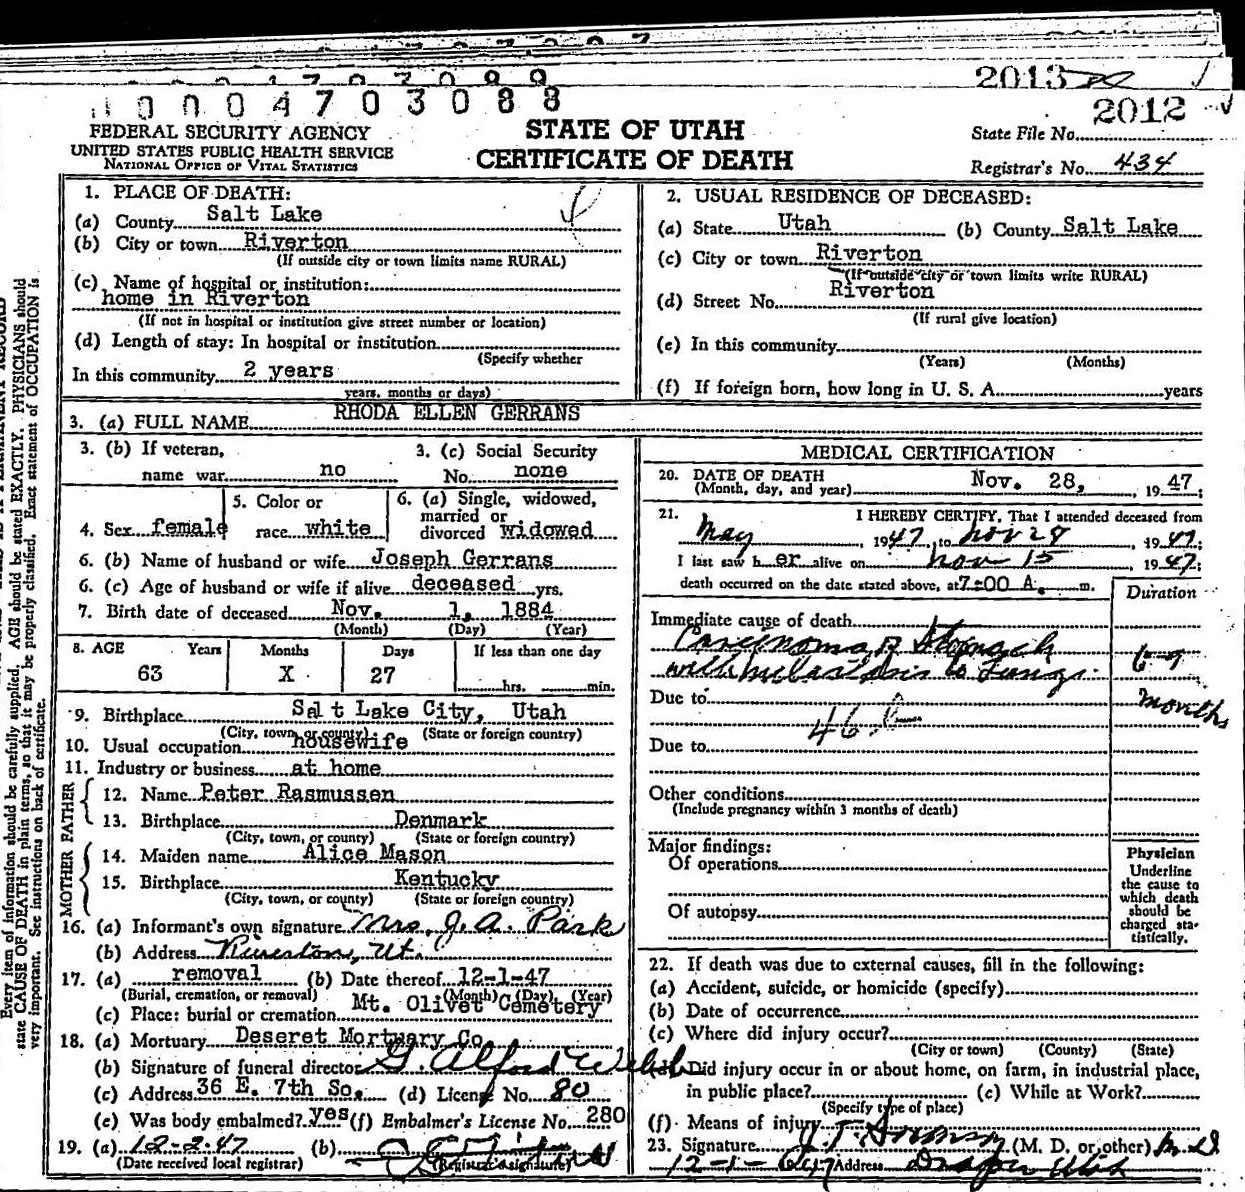 2013
0 0 0 4 7 0 3 0 8 8
2012
FEDERAL SECURITY AGENCY
UNITED STATES PUBLIC HEALTH SERVICE
NATIONAL OFFICE OF VITAL STATISTICS
STATE OF UTAH
CERTIFICATE OF DEATH
State File No.
Registrar's No. 434
Every item of information should be carefully supplied. AGE should be stated EXACTLY. PHYSICIANS should
state CAUSE OF DEATH in plain terms, so that it may be properly classified. Exact statement of OCCUPATION is
very important. See instructions on back of certificate.
1. PLACE OF DEATH:
(a) County Salt Lake
(b) City or town Riverton
(If outside city or town limits name RURAL)
(c) Name of hospital or institution:
home in Riverton
(If not in hospital or institution give street number or location)
(d) Length of stay: In hospital or institution
(Specify whether
In this community 2 years
years, months or days)
2. USUAL RESIDENCE OF DECEASED:
(a) State Utah (b) County Salt Lake
(c) City or town Riverton
(If outside city or town limits write RURAL)
(d) Street No. Riverton
(If rural give location)
(e) In this community
(Years) (Months)
(f) If foreign born, how long in U. S. A. years
3. (a) FULL NAME RHODA ELLEN GERRANS
3. (b) If veteran,
name war no
3. (c) Social Security
No. none
4. Sex female
5. Color or
race white
6. (a) Single, widowed,
married or
divorced widowed
6. (b) Name of husband or wife Joseph Gerrans
6. (c) Age of husband or wife if alive deceased yrs.
7. Birth date of deceased Nov. 1, 1884
(Month) (Day) (Year)
8. AGE Years Months Days If less than one day
63 X 27 hrs. min.
9. Birthplace Salt Lake City, Utah
(City, town, or county) (State or foreign country)
10. Usual occupation housewife
11. Industry or business at home
FATHER
12. Name Peter Rasmussen
13. Birthplace Denmark
(City, town, or county) (State or foreign country)
MOTHER
14. Maiden name Alice Mason
15. Birthplace Kentucky
(City, town, or county) (State or foreign country)
16. (a) Informant's own signature Mrs. J. A. Park
(b) Address Riverton, Ut.
17. (a) removal (b) Date thereof 12-1-47
(Burial, cremation, or removal) (Month) (Day) (Year)
(c) Place: burial or cremation Mt. Olivet Cemetery
18. (a) Mortuary Deseret Mortuary Co
(b) Signature of funeral director G. Alford Webb
(c) Address 36 E. 7th So. (d) License No. 80
(e) Was body embalmed? yes (f) Embalmer's License No. 280
19. (a) 12-2-47 (b)
(Date received local registrar) (Registrar's signature)
MEDICAL CERTIFICATION
20. DATE OF DEATH
(Month, day, and year) Nov. 28, 1947;
21. I HEREBY CERTIFY, That I attended deceased from
May, 1947, to Nov 28, 1947;
I last saw her alive on Nov 15, 1947;
death occurred on the date stated above, at 7:00 A. m.
Duration
Immediate cause of death
Carcinoma of Stomach
with metastasis to Lungs.
6-7
months
Due to
46.b
Due to
Other conditions
(Include pregnancy within 3 months of death)
Major findings:
Of operations
Of autopsy
Physician
Underline
the cause to
which death
should be
charged sta-
tistically.
22. If death was due to external causes, fill in the following:
(a) Accident, suicide, or homicide (specify)
(b) Date of occurrence
(c) Where did injury occur?
(City or town) (County) (State)
Did injury occur in or about home, on farm, in industrial place,
in public place? (e) While at Work?
(Specify type of place)
(f) Means of injury
23. Signature (M. D. or other) M.D.
12-1-47 Address Draper Utah